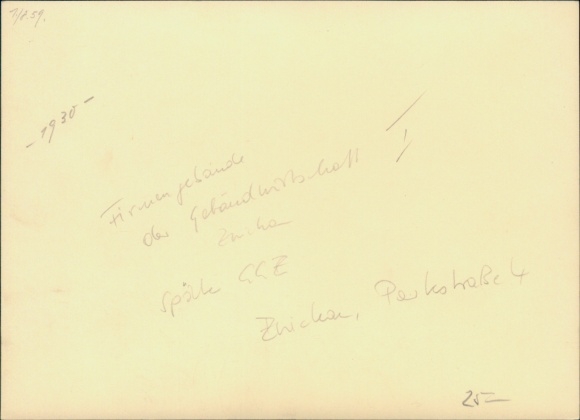 - 1930 -
Firmengebäude
der Gebäudewirtschaft
Zwickau
später GGZ
Zwickau, Parkstraße 4
25,-